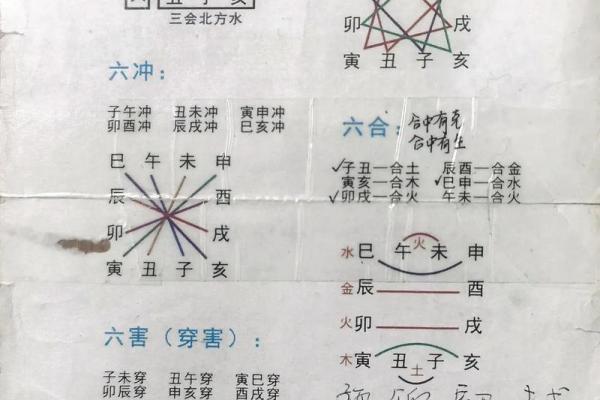 三会北方水
卯 戌
寅 丑 子 亥
六冲：
子午冲 丑未冲 寅申冲
卯酉冲 辰戌冲 巳亥冲
巳 午 未 申
辰 酉
卯 戌
寅 丑 子 亥
六害（穿害）：
子未穿 丑午穿 寅巳穿
卯辰穿 申亥穿 酉戌穿
六合： 合中有克
合中有生
✓子丑一合土 辰酉一合金
寅亥一合木 ✓巳申一合水
✓卯戌一合火 午未一合火
水 巳 午 火 未 申
金 辰 酉
火 卯 戌
木 寅 丑 土 子 亥